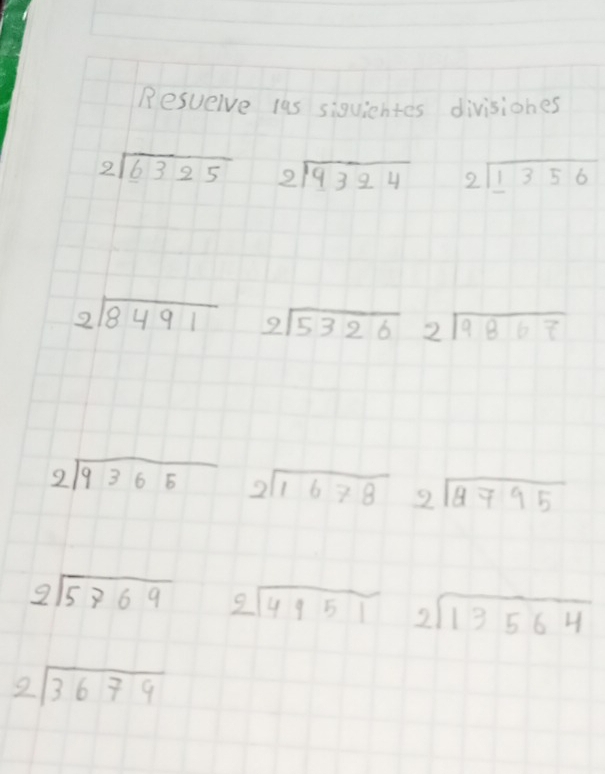 Resuelve las siguientes divisiones
2 6325 2 9324 2 1356
2 8491 2 5326 2 9867
2 9365 2 1678 2 8795
2 5769 2 4951 2 13564
2 3679